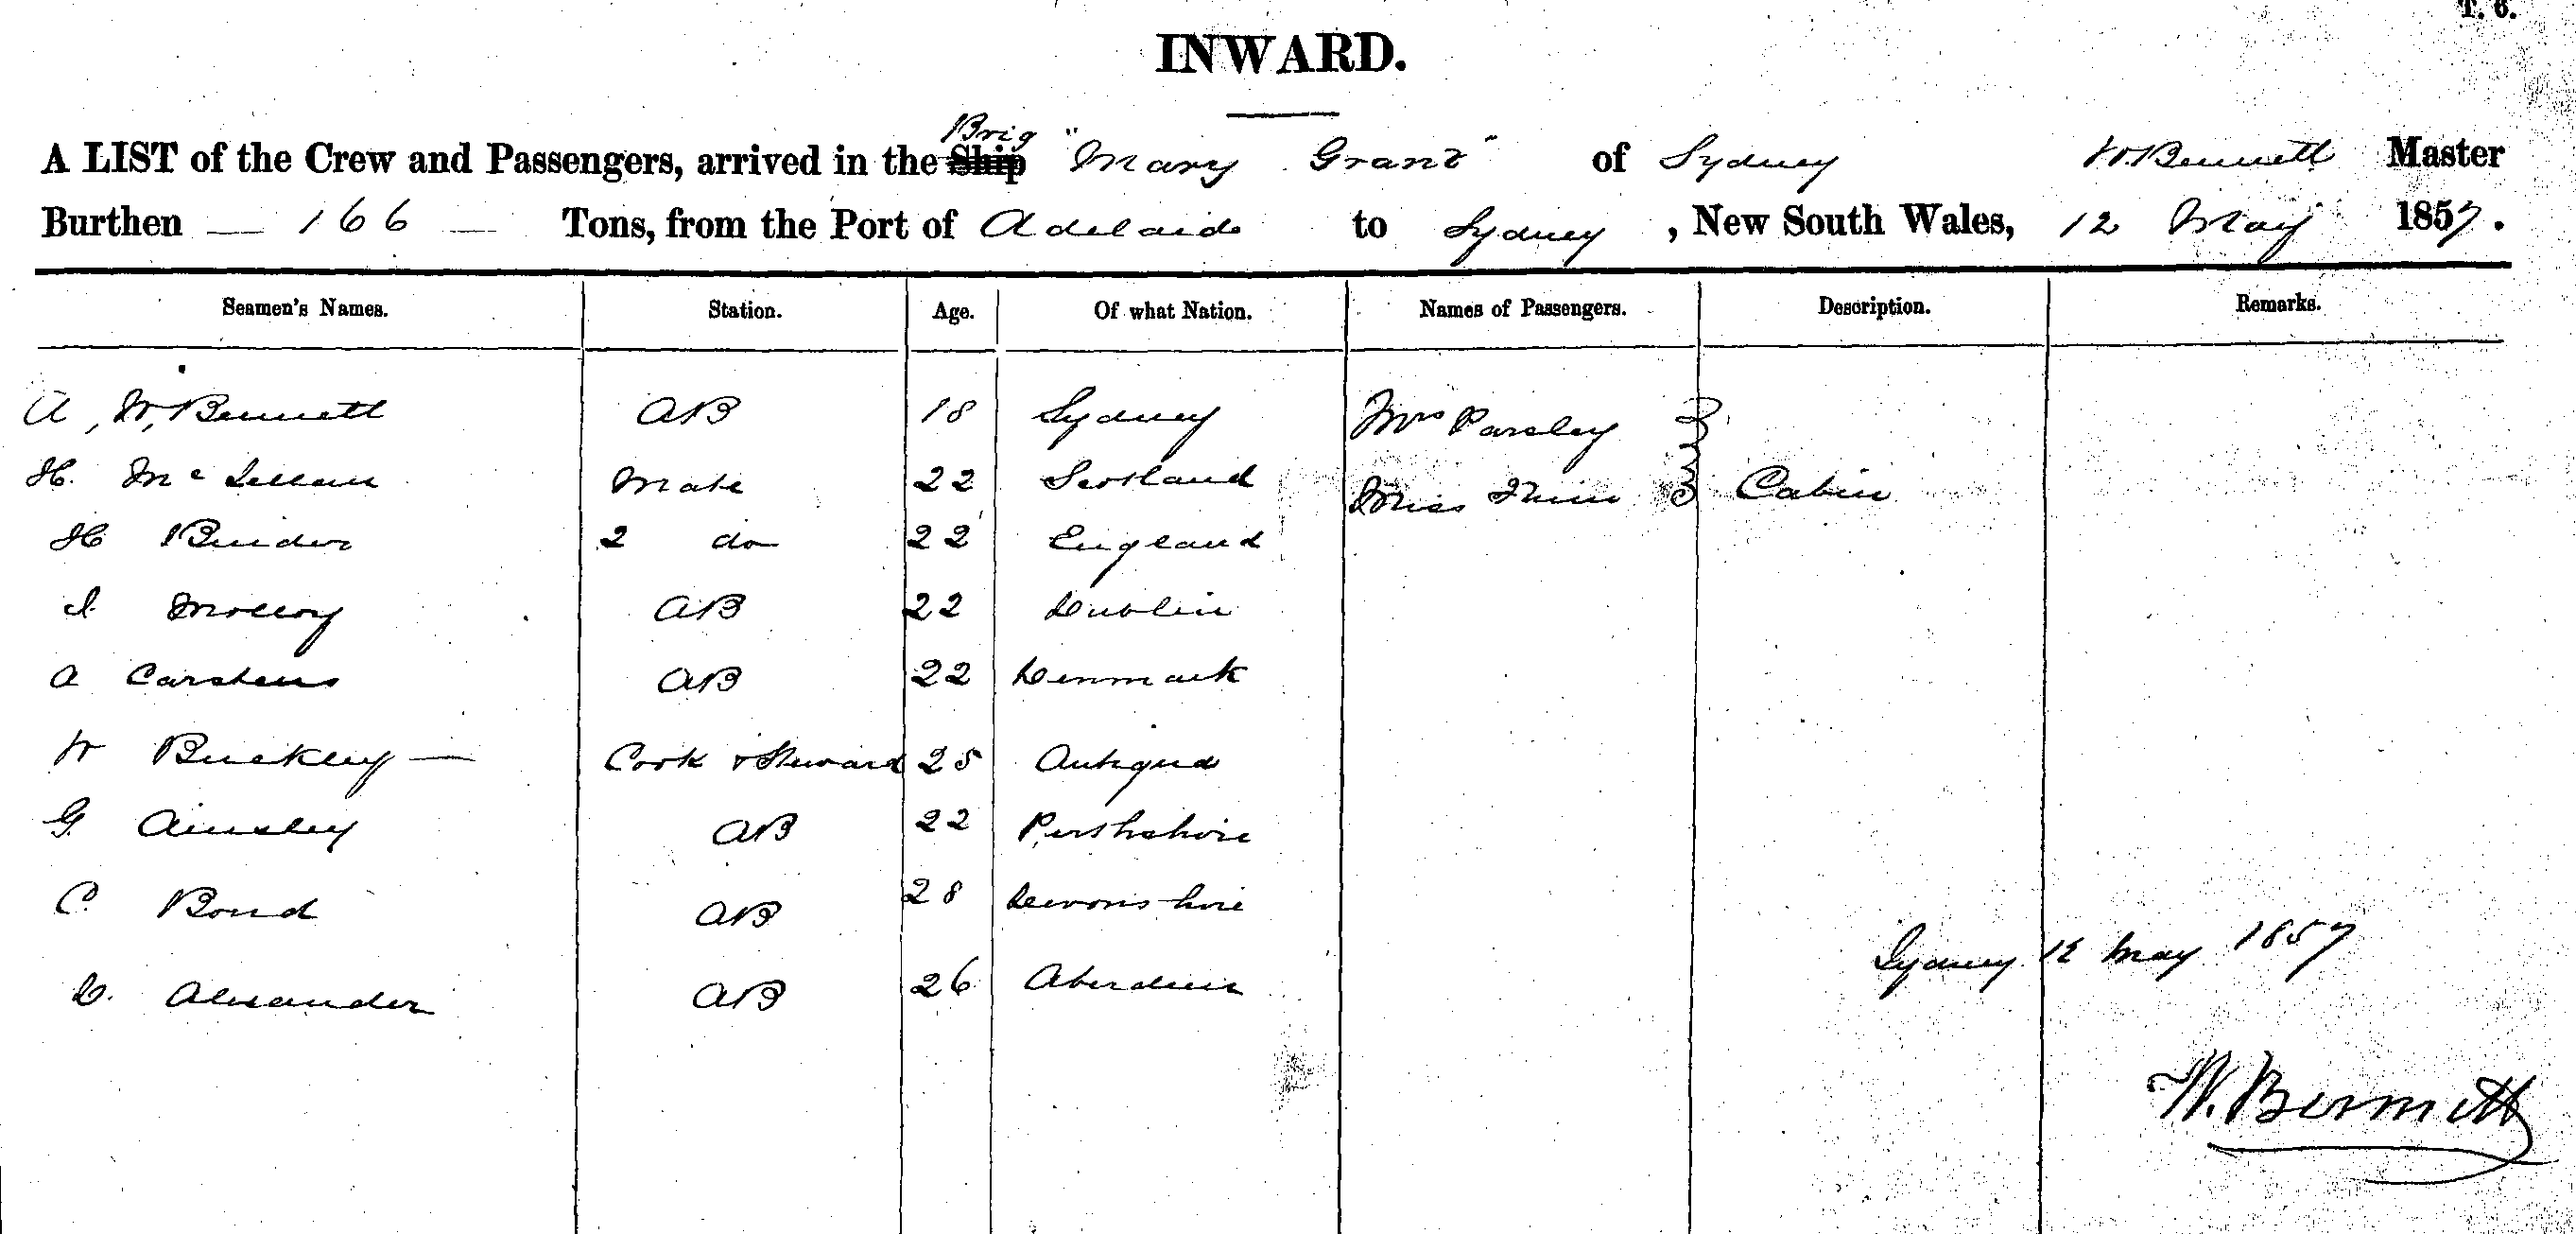 T. 6.
INWARD.
Brig
A LIST of the Crew and Passengers, arrived in the Ship "Mary Grant" of Sydney W Bennett Master
Burthen — 166 — Tons, from the Port of Adelaide to Sydney, New South Wales, 12 May 1857.
Seamen's Names. Station. Age. Of what Nation. Names of Passengers. Description. Remarks.
A, W, Bennett AB 18 Sydney Mrs Parsley
H. Mc Lellan Mate 22 Scotland Miss Cabin
H Binder 2 do 22 England
J. Molloy AB 22 Dublin
A Carstens AB 22 Denmark
W Buckley — Cook & Steward 25 Antigua
G. Ainsley AB 22 Perthshire
C. Bond AB 28 Devonshire
D. Alexander AB 26 Aberdeen
Sydney 12 May 1857
W. Bennett